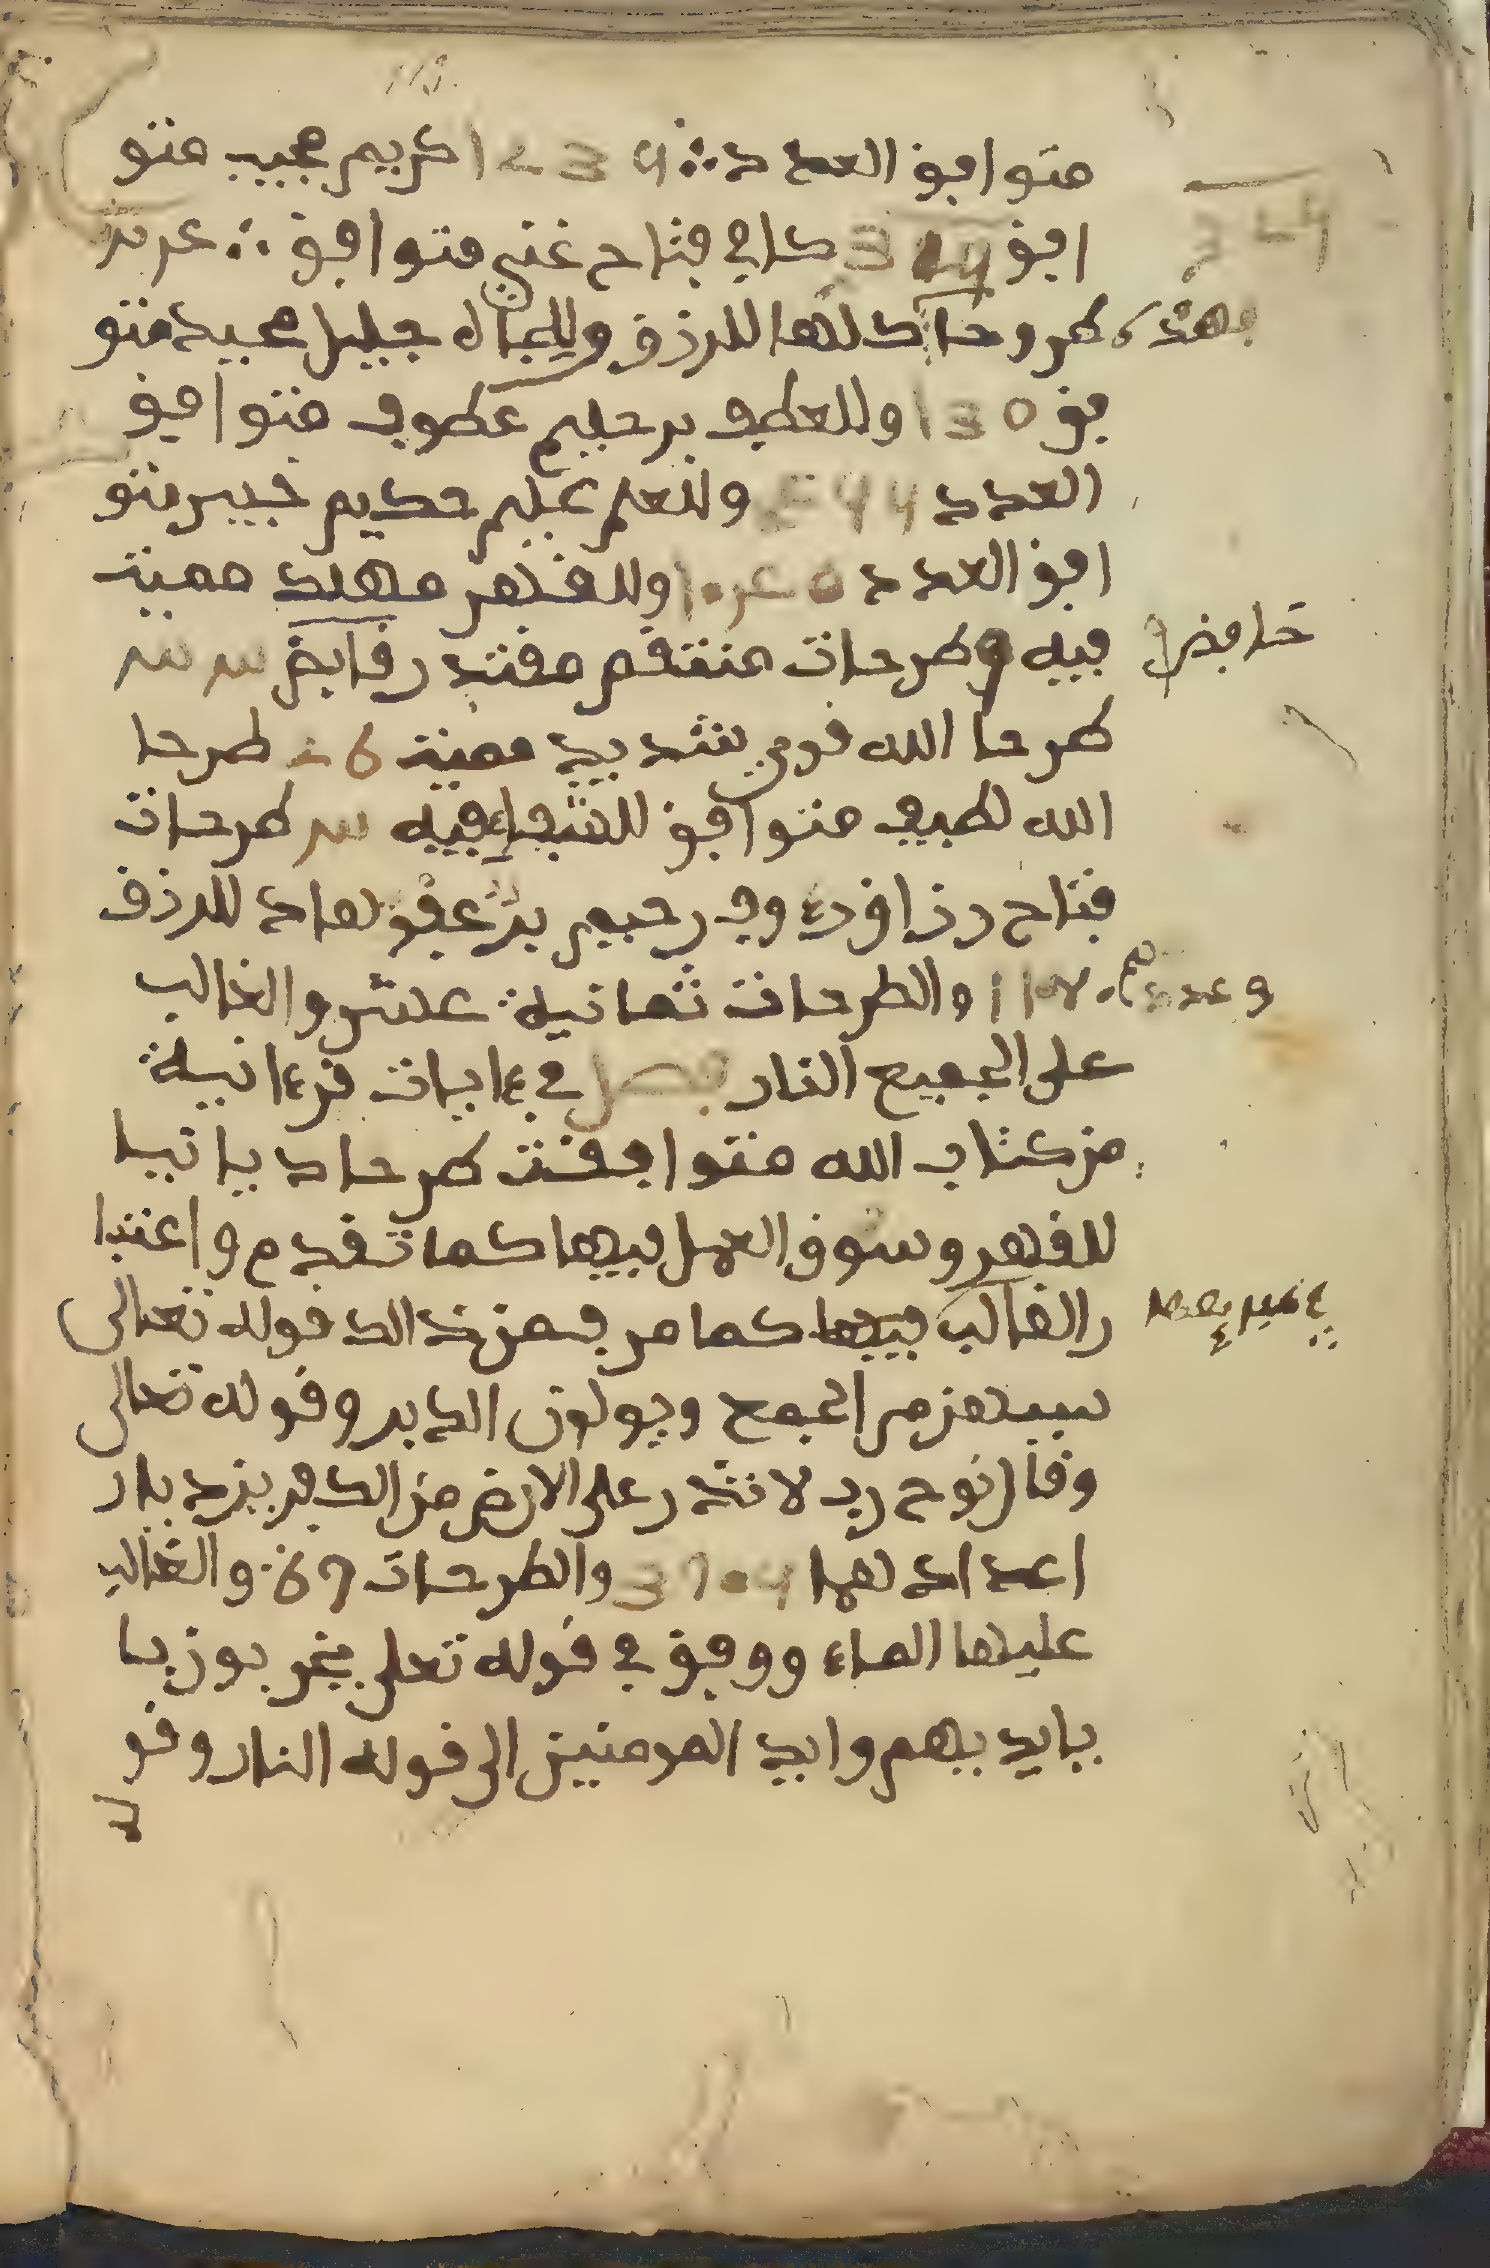 متوافق العدد 1234 كريم مجيب متو
افق 344 كافي فتاح غني متوافق
فهذه طروحات كلها للرزق وللجمال جليل مجيد متو
فق 130 وللعطف بر حليم عطوف متوافق
العدد 244 وللعلم عليم حكيم خبير متو
افق العدد وللقهر مهلك مميت
فيه طرحات منتقم مقتدر قابض
خافض
طرحا الله قوي شديد مميت 6 طرحا
الله لطيف متوافق للشفاء فيه طرحات
فتاح رزاق رءوف رحيم بر لها للرزق
وعددهم 11 والطرحات ثمانية عشر والغالب
على الجميع النار فصل في ءايات قرءانية
من كتاب الله متوافقت طرحا ديانيا
للقهر وسوق العمل فيها كما تقدم واعتبا
ر الغالب فيها كما مر فمن ذالك قوله تعالى
سيهزم الجمع ويولون الدبر وقوله تعالى
وقال نوح رب لا تذر على الارض من الكفرين ديار
اعدادهما 3704 والطرحات 67 والغالب
عليهما الماء ووفق في قوله تعلى يخربون بيو
بايديهم وايدي المومنين الى قوله النار وقو
له